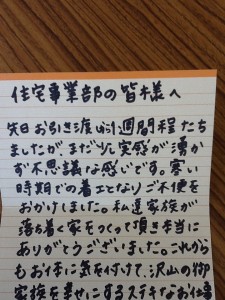 住宅事業部の皆様へ
先日お引き渡しから1週間程たち
ましたが、まだ少し実感が湧か
ず不思議な感じです。寒い
時期での着工となりご不便を
おかけしました。私達家族が
落ち着く家をつくって頂き本当に
ありがとうございました。これから
もお体に気を付けて、沢山の御
家族を幸せにするステキなお仕事